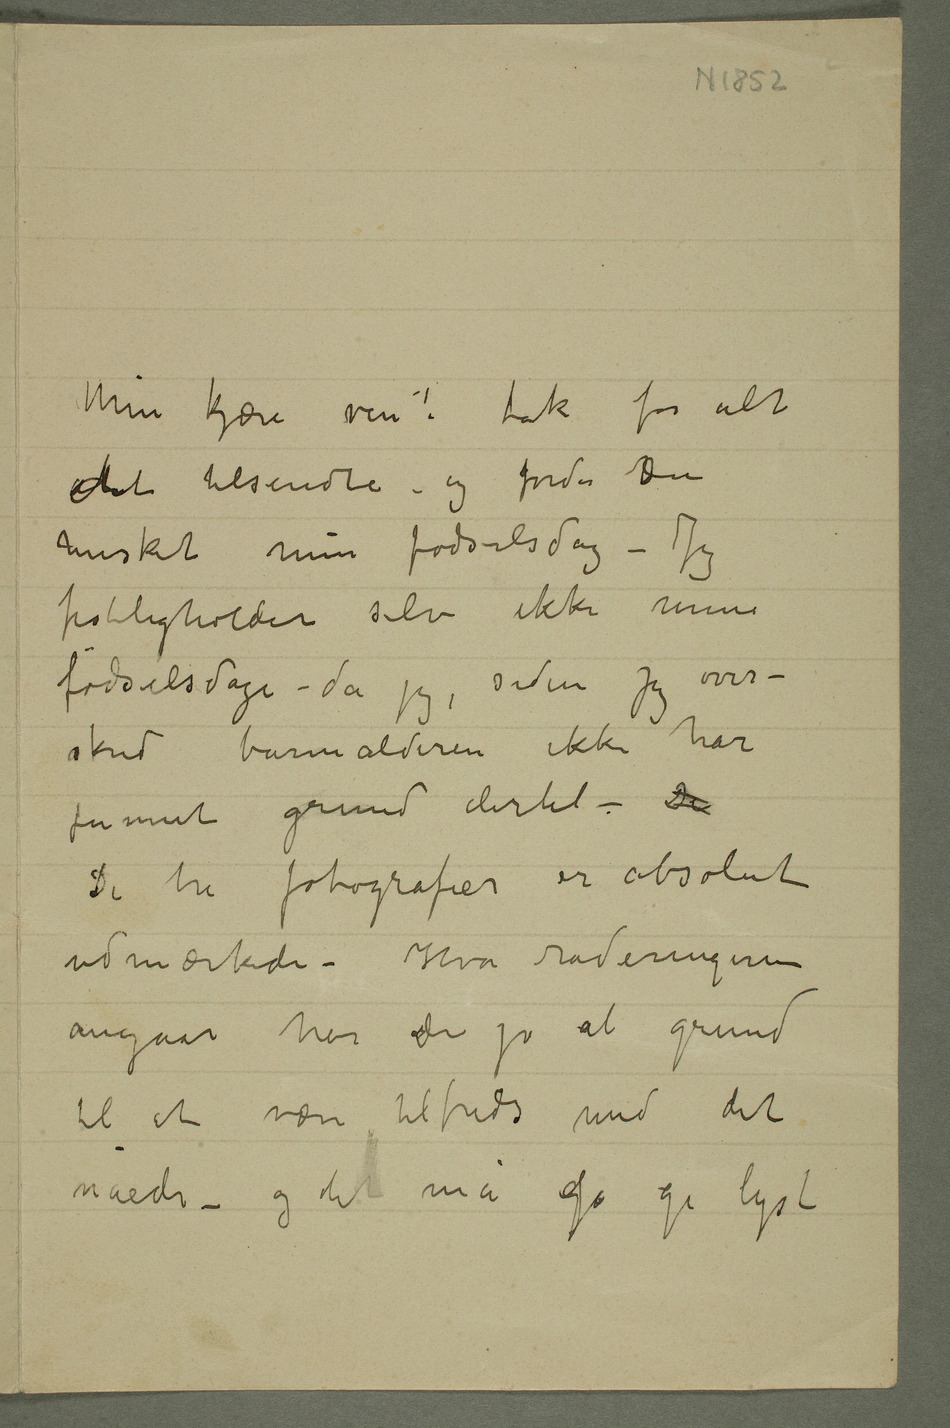 N1852
Min kjære ven! tak for alt
det tilsendte – og fordi Du
husket min fødselsdag – Jeg
festligholder selv ikke mine
fødselsdage – da jeg, siden jeg over-
skred barnealderen ikke har
funnet grund dertil – De
De tre fotografier er absolut
udmærkede – Hva raderingerne
angaar har De jo al grund
til at være tilfreds med det
nåede – og det må jo gi lyst